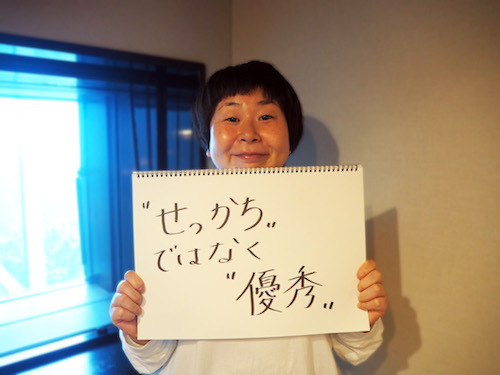 "せっかち"
ではなく
"優秀"